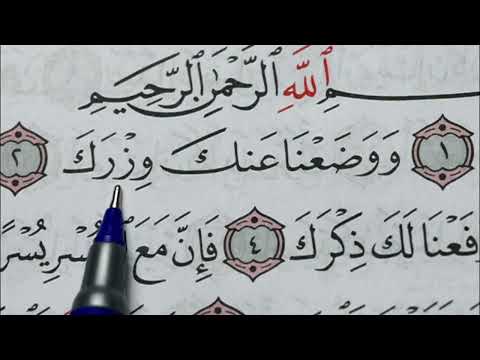 ـسْمِ ٱللَّهِ ٱلرَّحْمَٰنِ ٱلرَّحِيمِ
١ وَوَضَعْنَا عَنكَ وِزْرَكَ ٢
فَعْنَا لَكَ ذِكْرَكَ ٤ فَإِنَّ مَعَ ٱلْعُسْرِ يُسْرًا